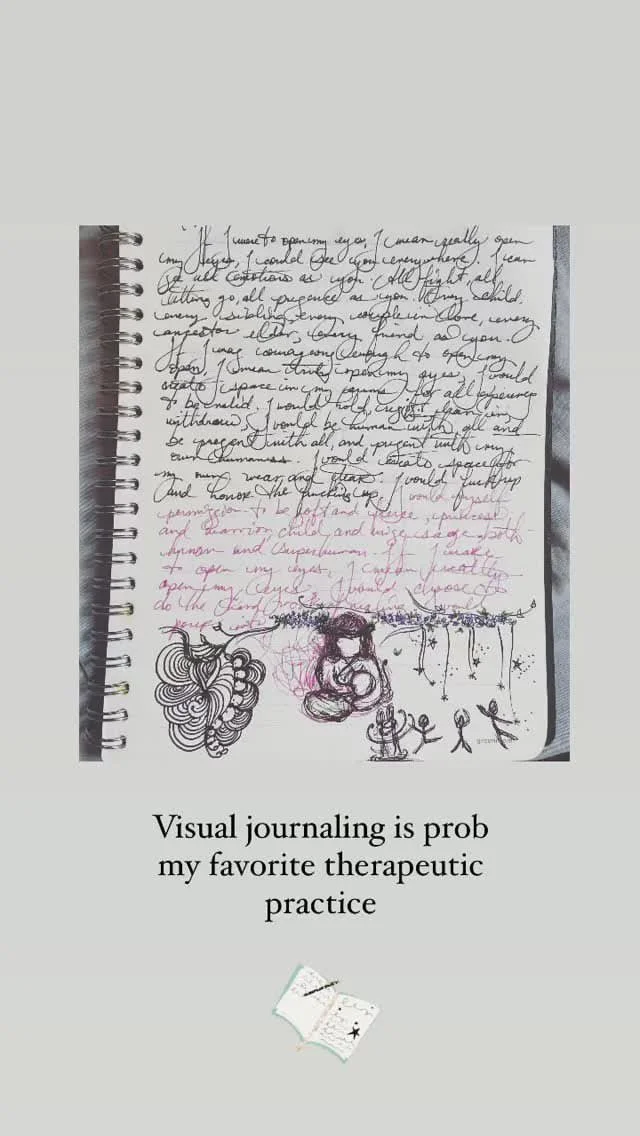 If I were to open my eyes, I mean really open
my eyes, I could see you everywhere. I can
see all emotions as you. All fight, all
letting go, all presence as you. Every child.
every sibling, every couple in love, every
ancestor elder, every friend as you.
If I was courageous enough to open my
open, I mean truly open my eyes, I would
create space in my for all
to be valid. I would hold,
withdraw, I would be human with all and
be present with all, and present with my
own humanness. I would create space for
my own wear and tear. I would fuck up
and honor the fucking up. I would myself
permission to be soft and
and warrior, child and wise sage. both
human and superhuman. If I were
to open my eyes, I mean really
open my eyes, I would choose to
do the hard would
into
Visual journaling is prob
my favorite therapeutic
practice